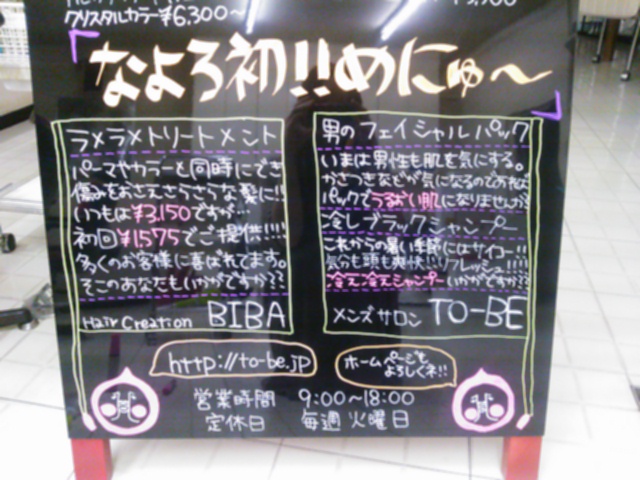 クリスタルカラー¥6,300〜
「なよろ初!!めにゅ〜」
ラメラメトリートメント
パーマやカラーと同時にでき
傷みをおさえさらさらな髪に!!
いつもは¥3,150ですが…
初回¥1,575でご提供!!!!
多くのお客様に喜ばれてます。
そこのあなたもいかがですか??
Hair Creation BIBA
男のフェイシャルパック
いまは男性も肌を気にする。
かさつきなどが気になるのであれば
パックでうるおい肌になりませんか?
冷しブラックシャンプー
これからの暑い季節にはサイコー!!
気分も頭も爽快!!リフレッシュ!!!!
冷え冷えシャンプーいかがですか??
メンズサロン TO-BE
http://to-be.jp
ホームページも
よろしくネ!!
営業時間 9:00〜18:00
定休日 毎週火曜日